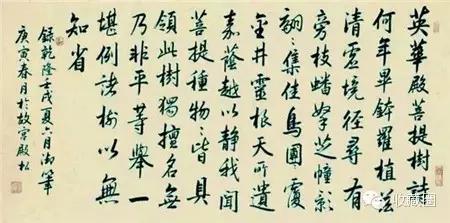 英華殿菩提樹詩
何年畢鉢羅植茲
清虛境徑尋有
旁枝蟠拏芝幢影
翩〻集佳鳥團〻覆
金井靈根天所遺
嘉蔭越以靜我聞
菩提種物〻皆具
領此樹獨擅名無
乃非平等舉一
堪例諸樹以無
知省
錄乾隆壬戌夏六月御筆
庚寅春月於故宮殿松